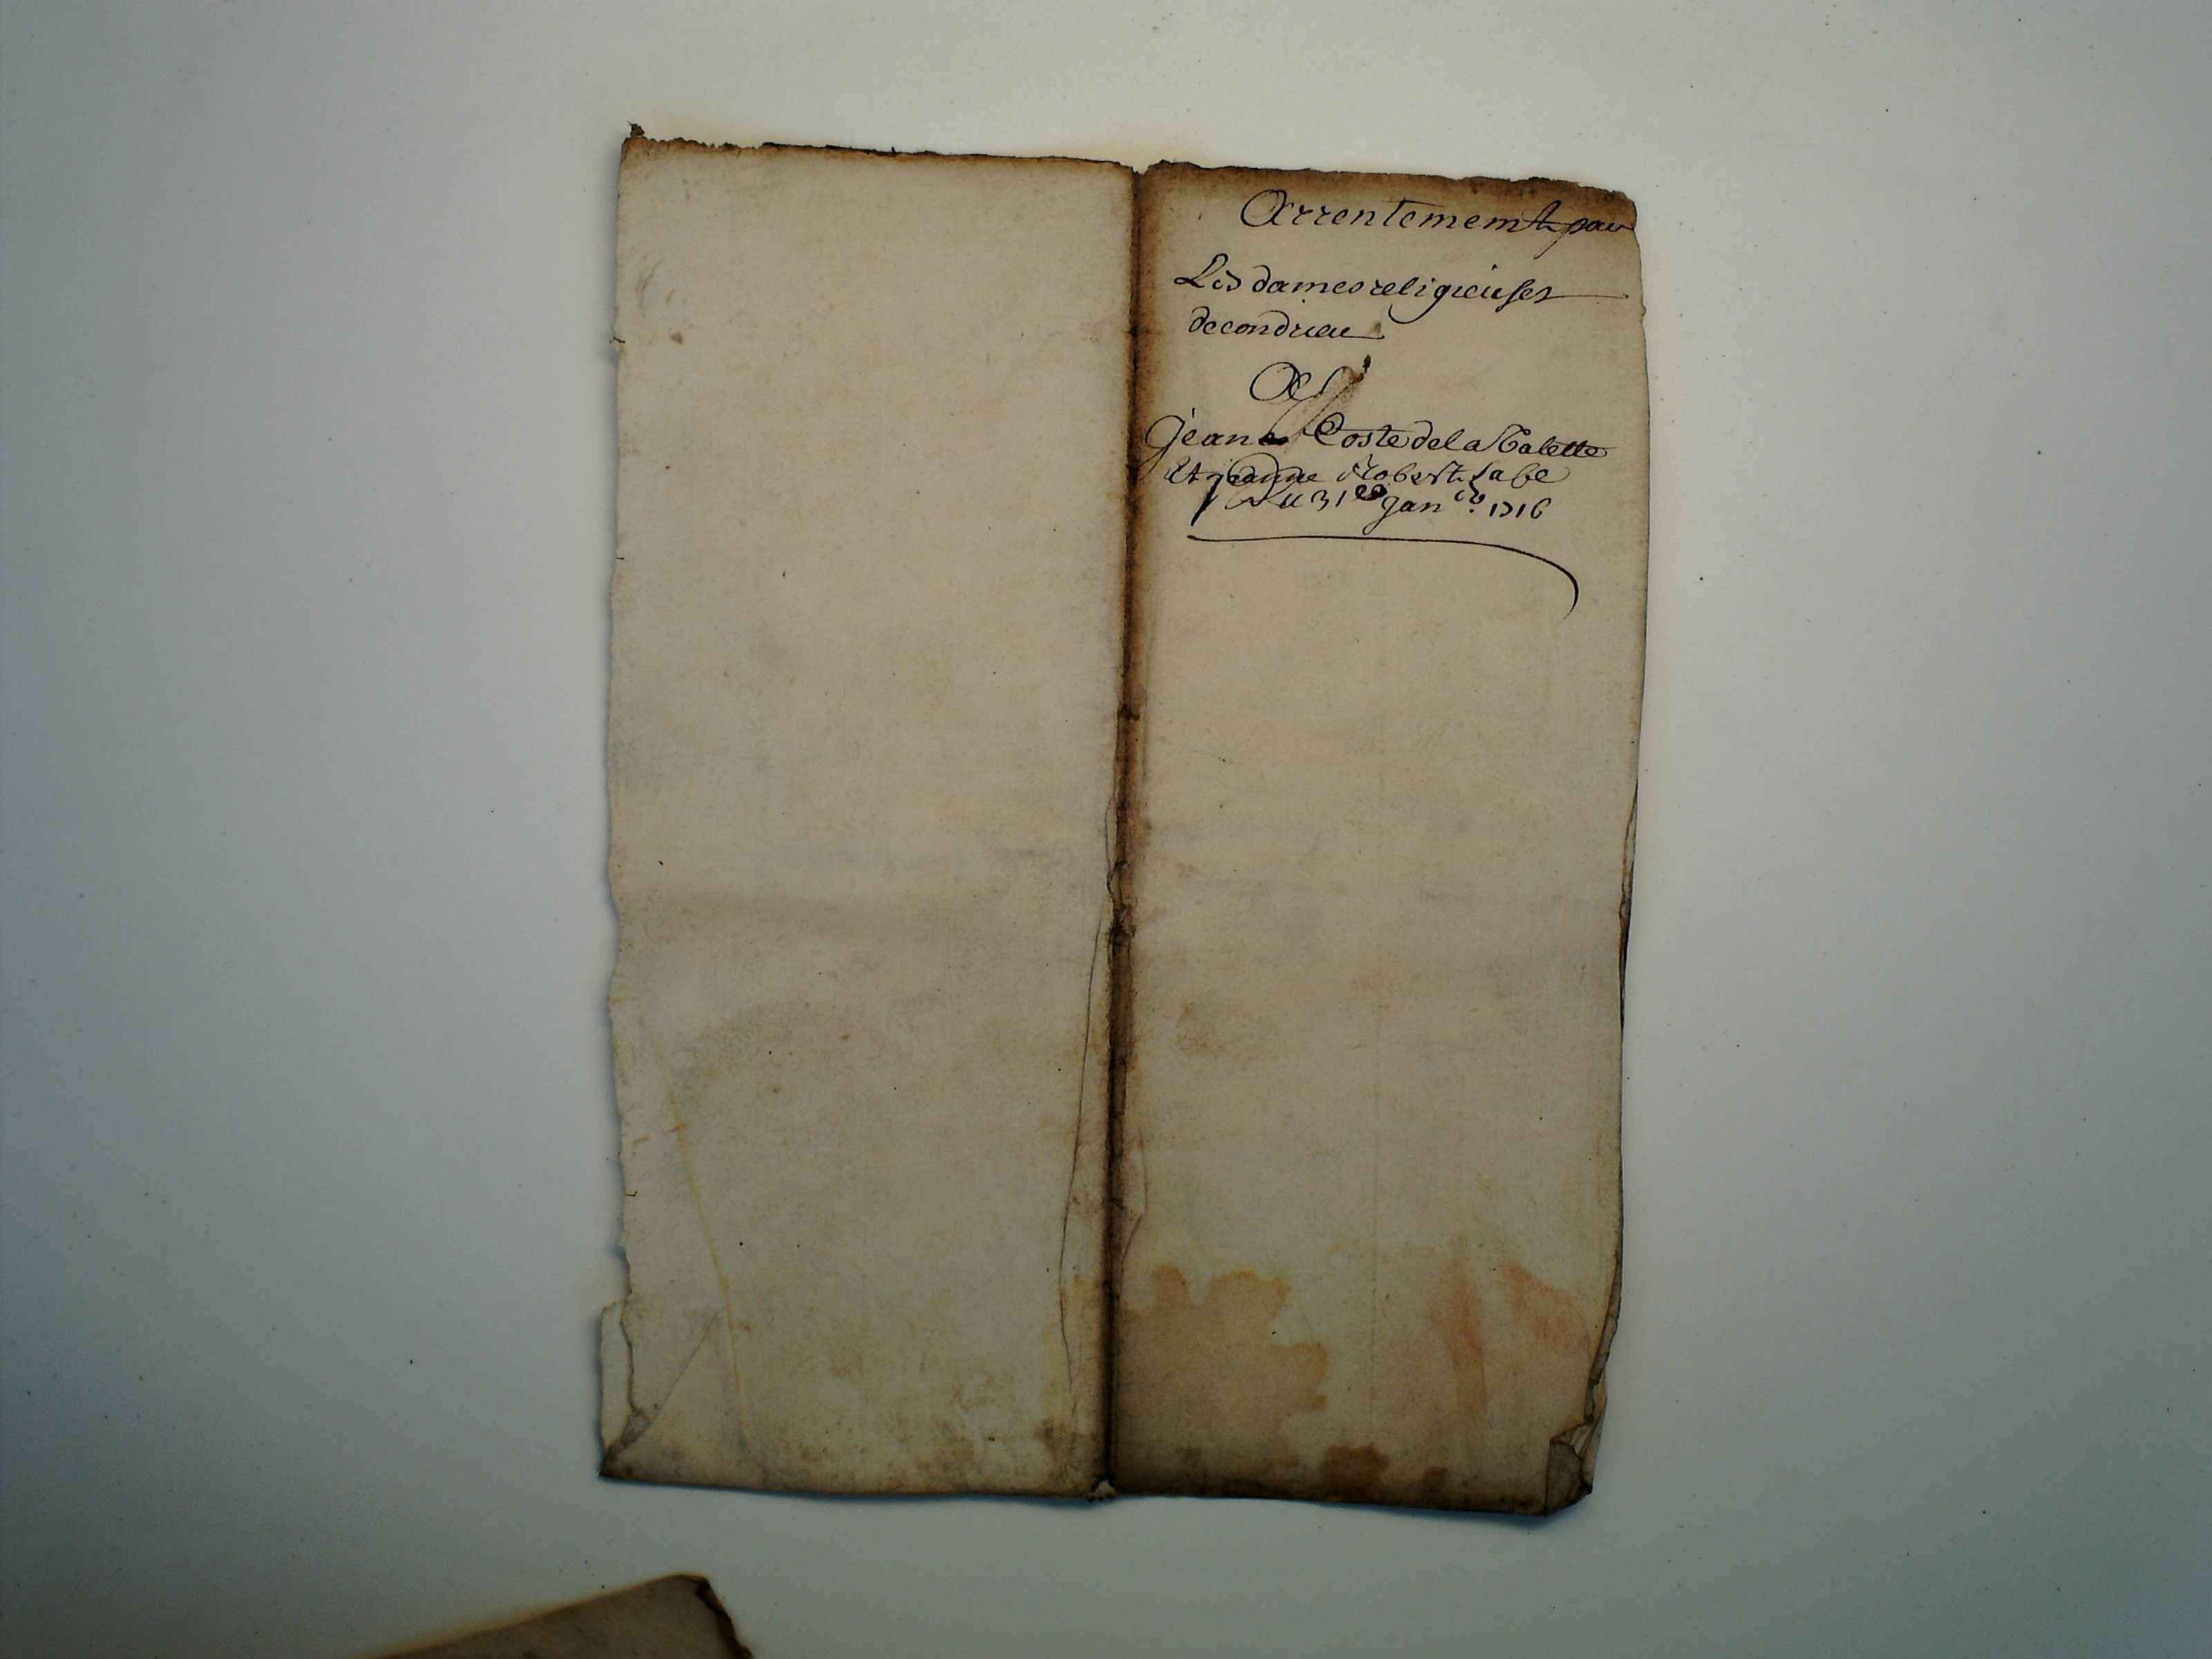 Arrentement par
Les dames religieuses
de condrieu
A
jean Coste de la Valette
Et jeanne Robert sa fe
Du 31e janer. 1716